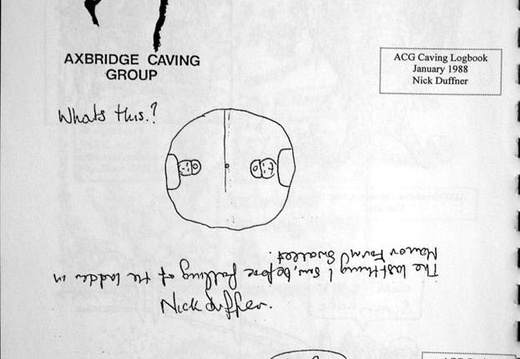 AXBRIDGE CAVING
GROUP
ACG Caving Logbook
January 1988
Nick Duffner
Whats this?
The last thing I saw, before falling of the ladder in
Manor Farm Swallet.
Nick Duffner.